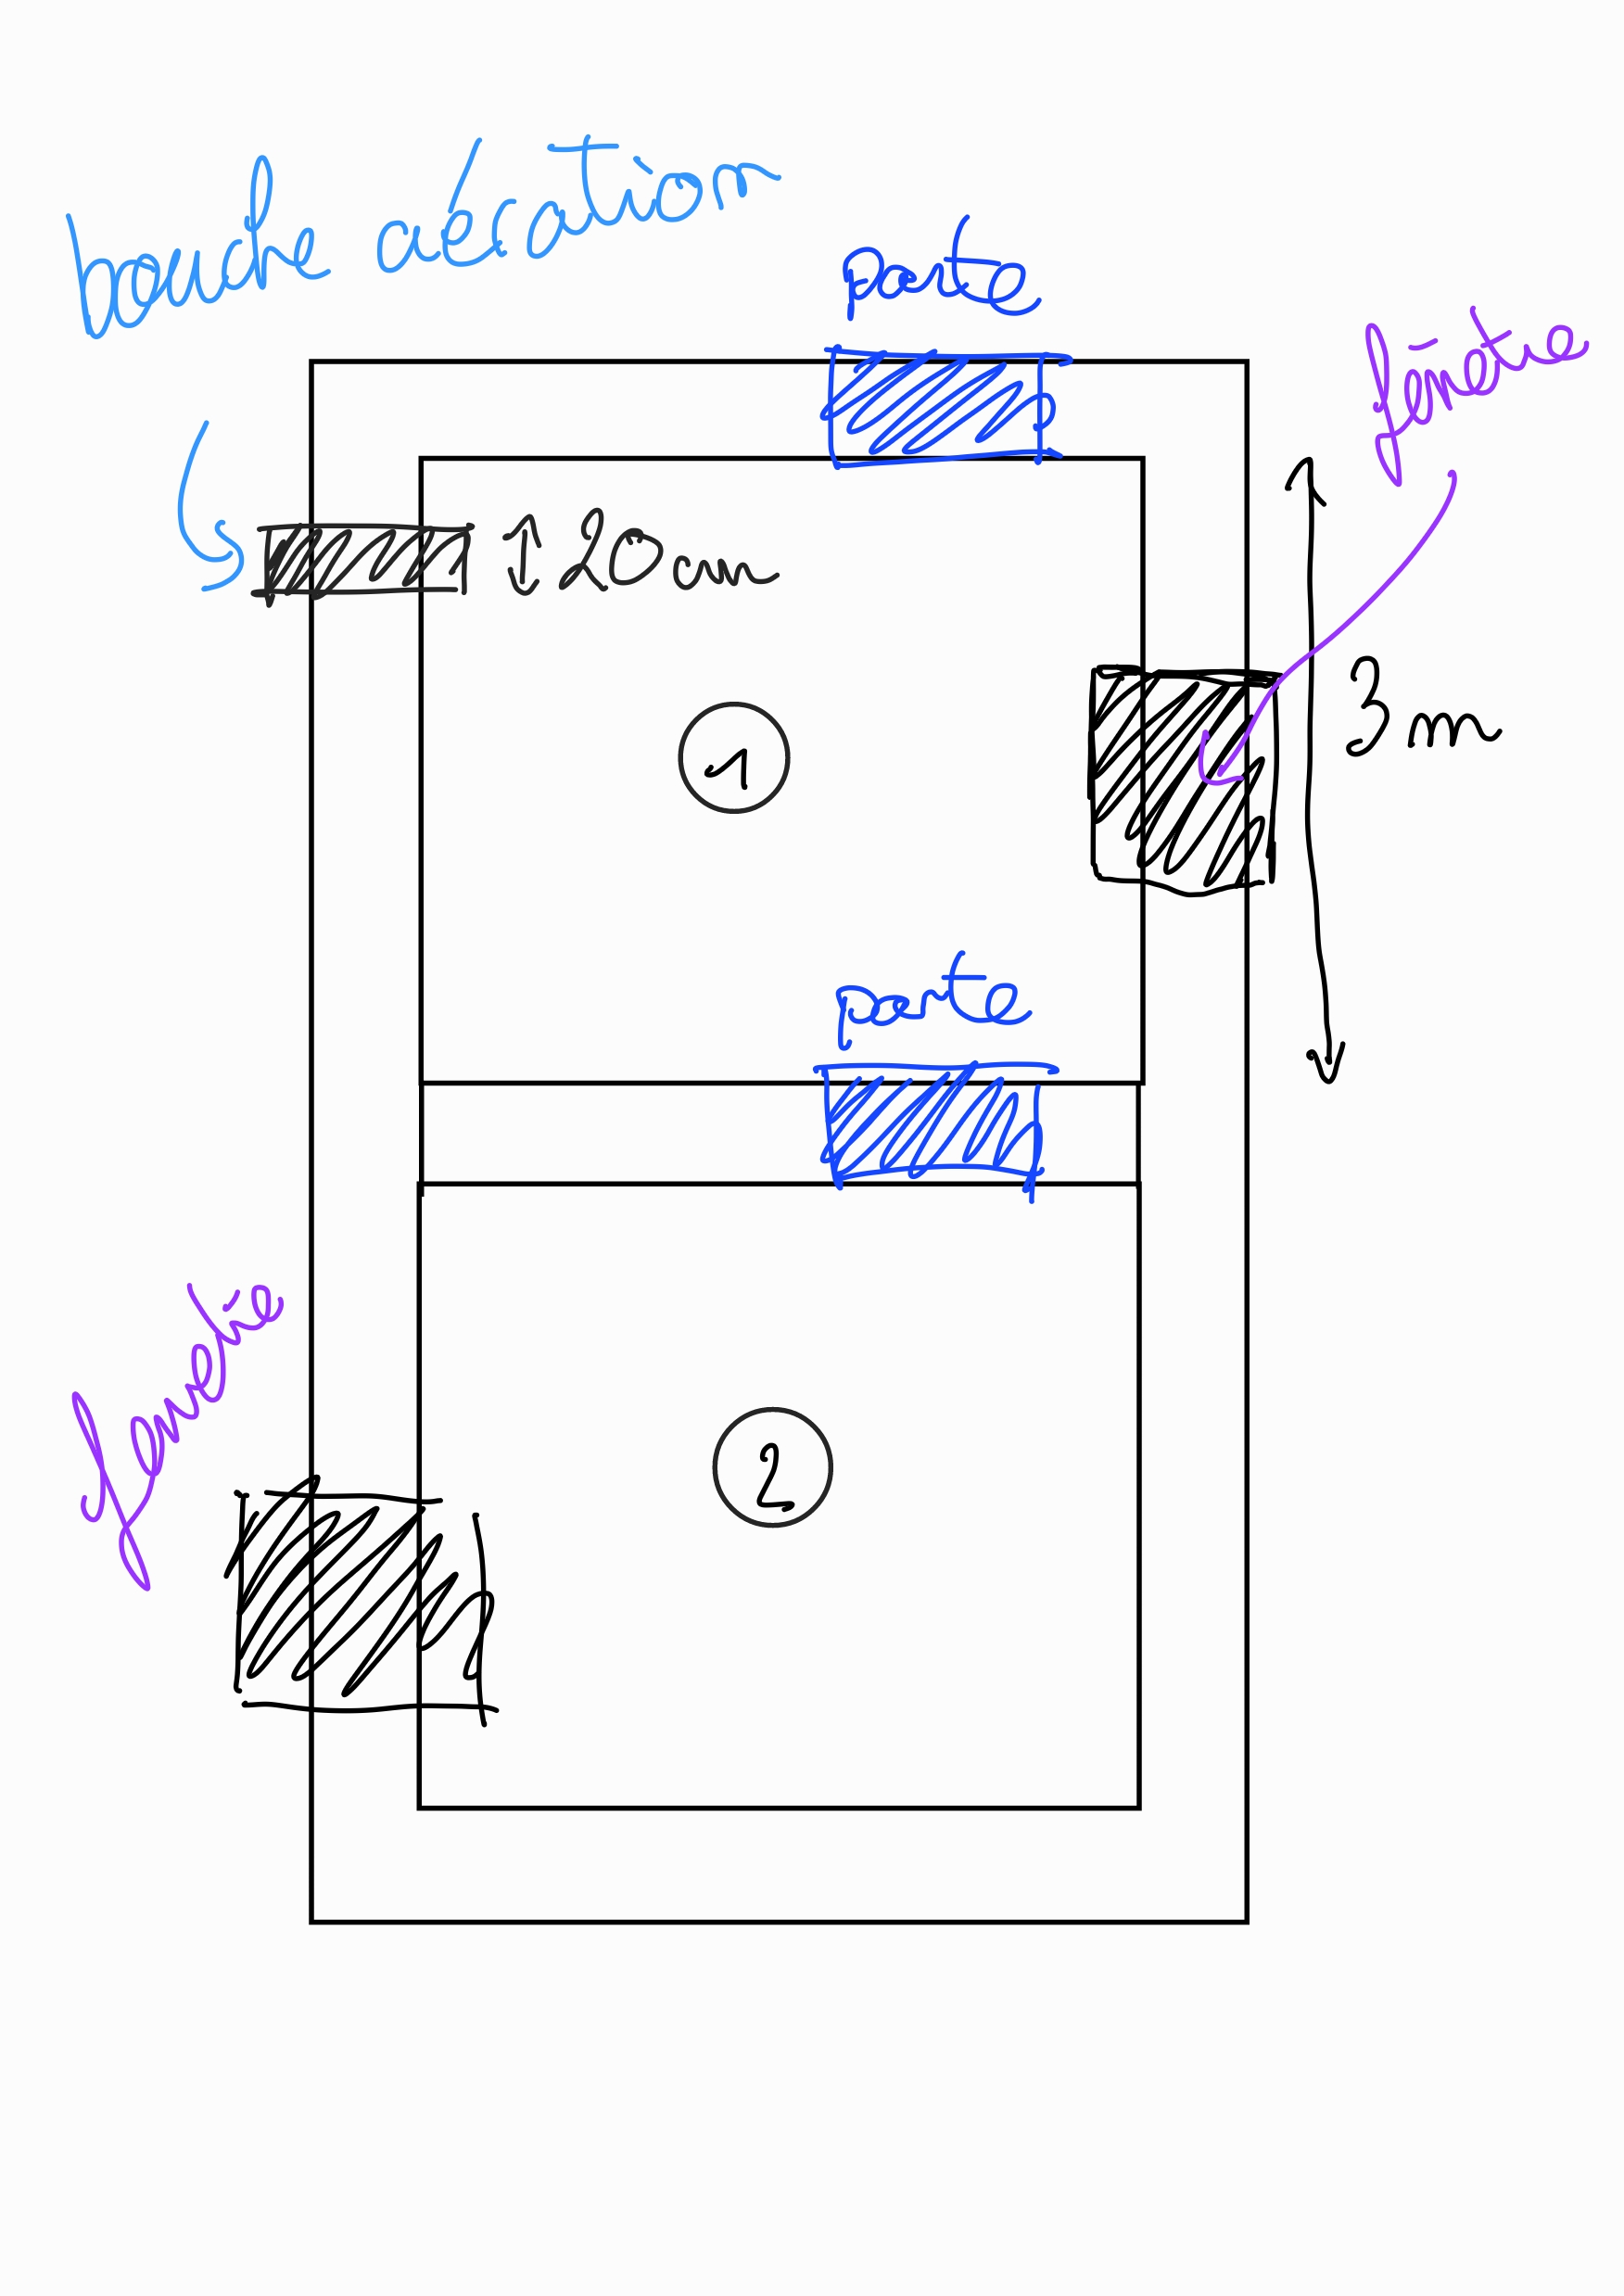 bouche aération
porte
fenêtre
20 cm
3 m
1
porte
fenêtre
2